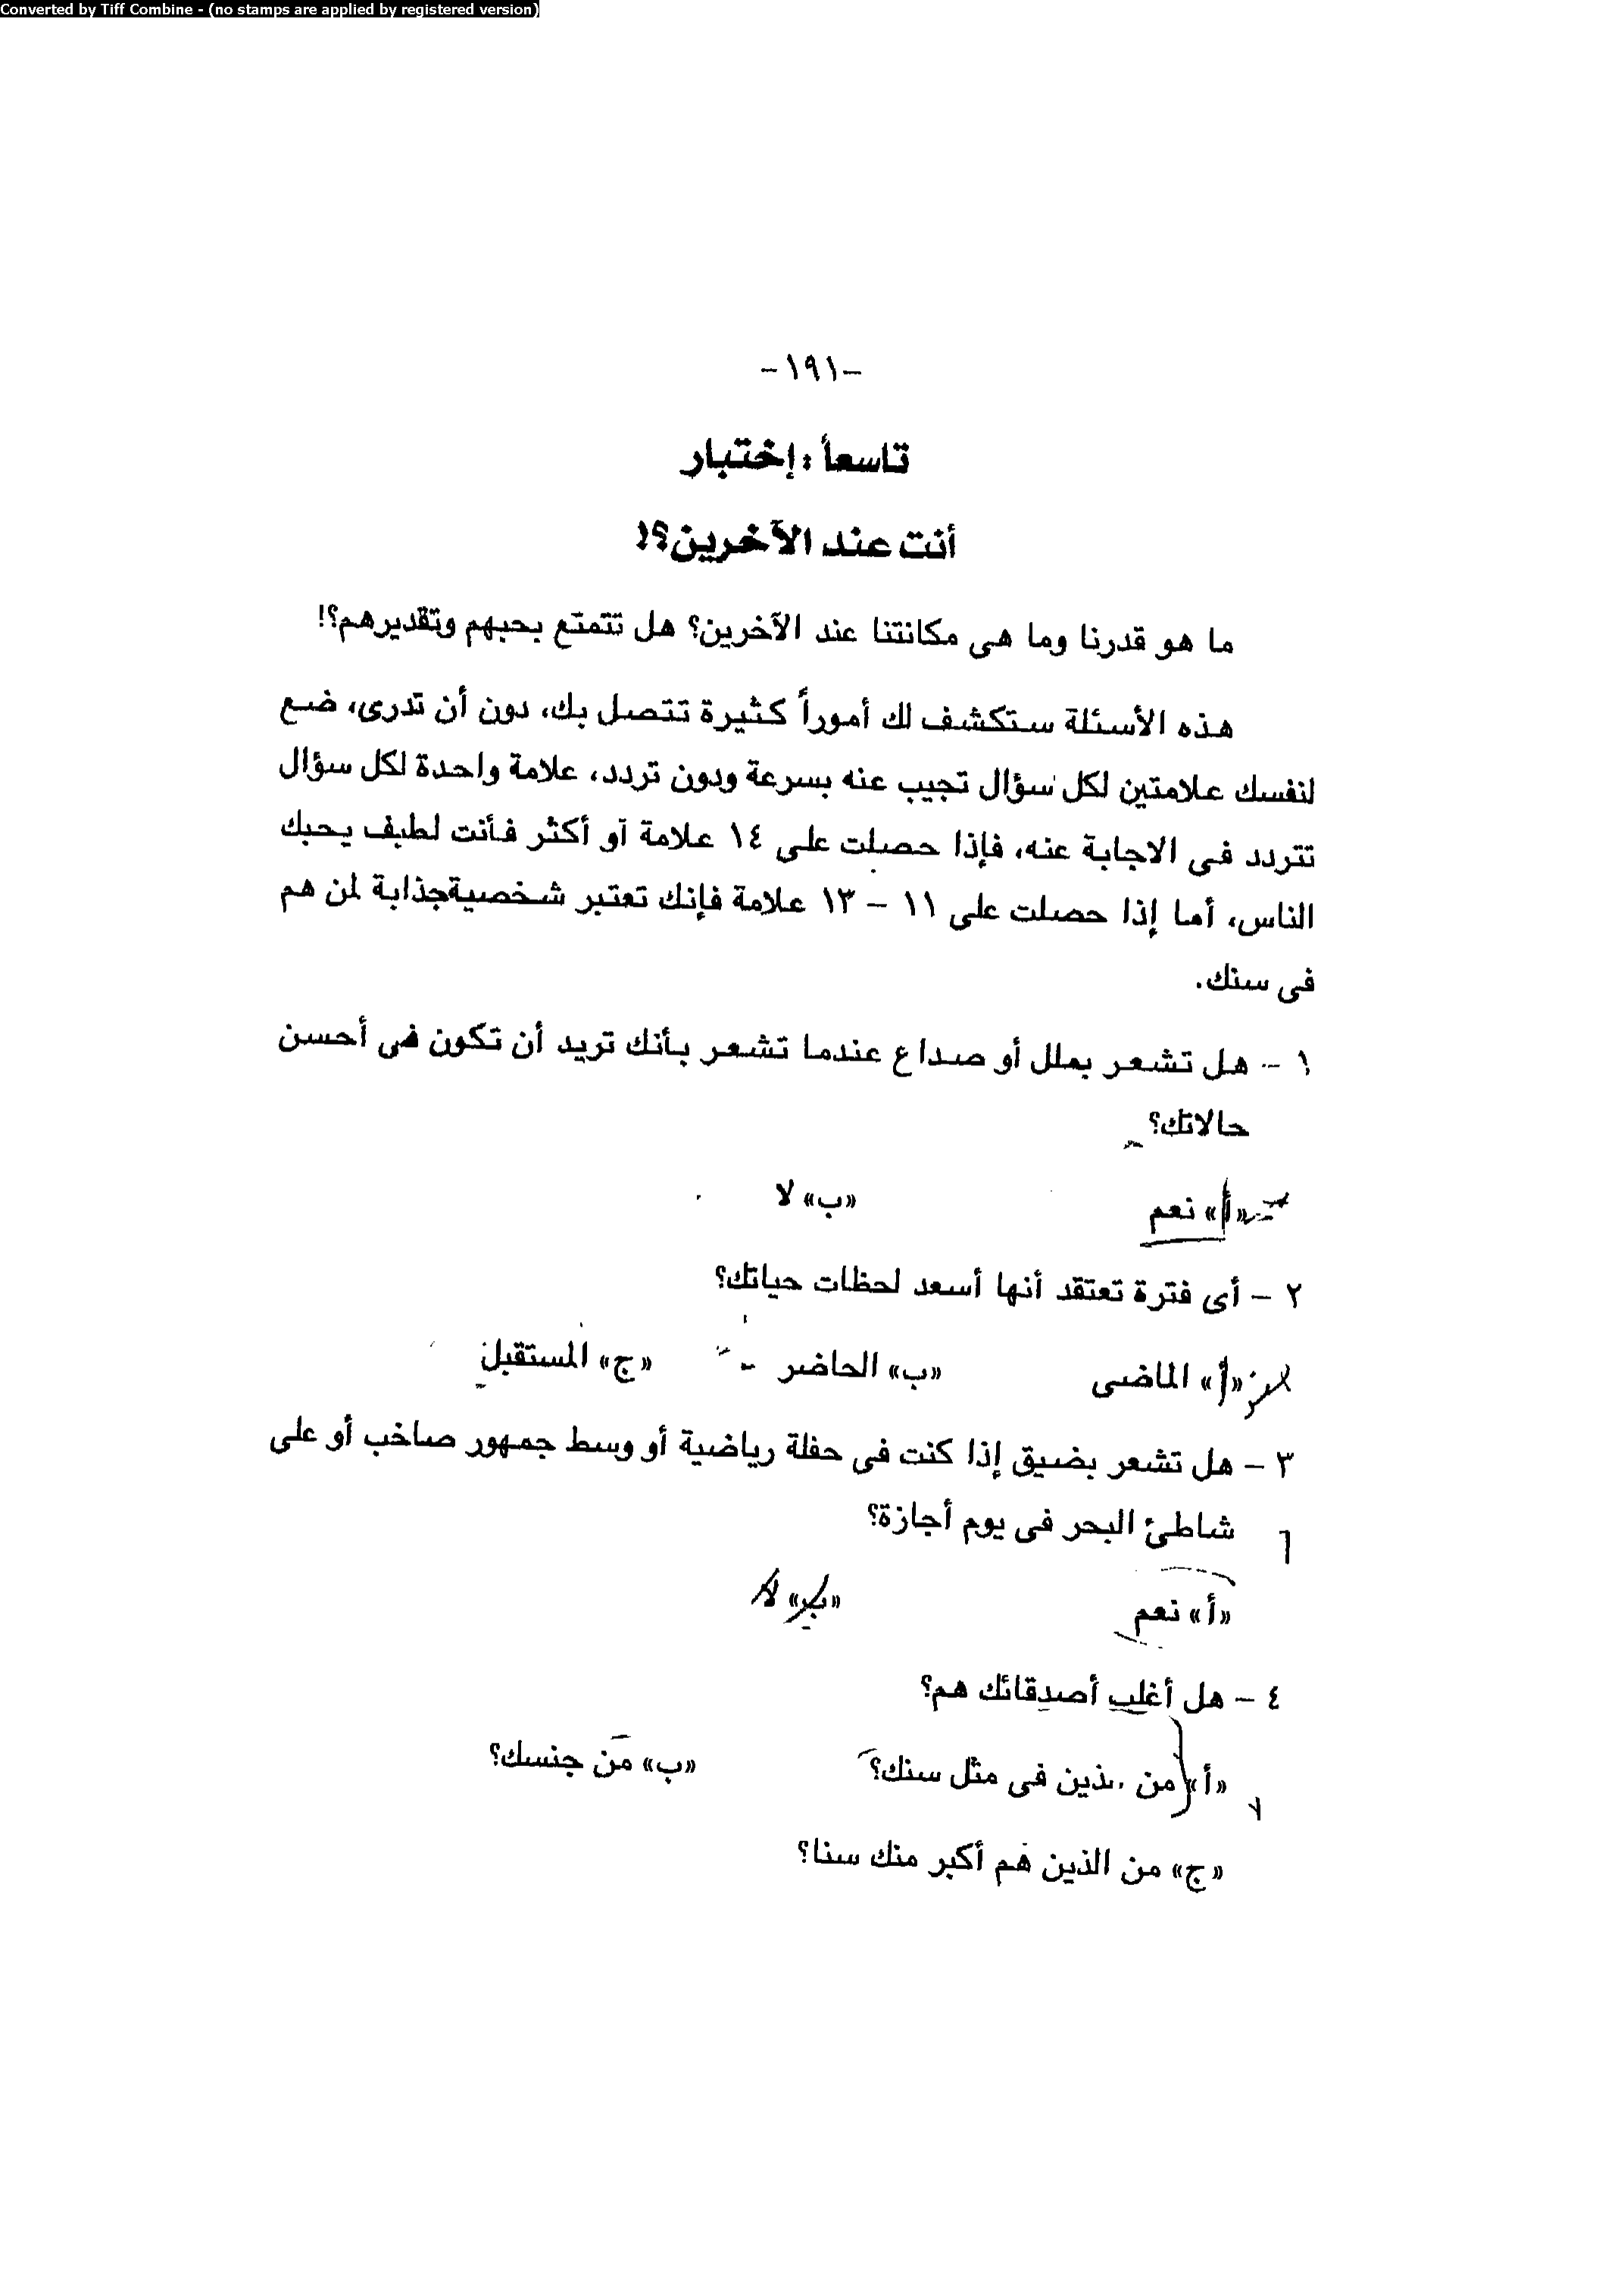 Converted by Tiff Combine - (no stamps are applied by registered version)
-١٩١-
تاسعاً : إختبار
أنت عند الآخرين؟!
ما هو قدرنا وما هى مكانتنا عند الآخرين؟ هل تتمتع بحبهم وتقديرهم؟!
هذه الأسئلة ستكشف لك أموراً كثيرة تتصل بك، دون أن تدرى، ضع
لنفسك علامتين لكل سؤال تجيب عنه بسرعة ودون تردد، علامة واحدة لكل سؤال
تتردد فى الاجابة عنه، فإذا حصلت على ١٤ علامة أو أكثر فأنت لطيف يحبك
الناس، أما إذا حصلت على ١١ – ١٣ علامة فإنك تعتبر شخصيةجذابة لمن هم
فى سنك.
١ – هل تشعر بملل أو صداع عندما تشعر بأنك تريد أن تكون فى أحسن
حالاتك؟
«أ» نعم «ب» لا
٢ – أى فترة تعتقد أنها أسعد لحظات حياتك؟
«أ» الماضى «ب» الحاضر «ج» المستقبل
٣ – هل تشعر بضيق إذا كنت فى حفلة رياضية أو وسط جمهور صاخب أو على
شاطئ البحر فى يوم أجازة؟
٦
«أ» نعم «ب» لا
٤ – هل أغلب أصدقائك هم؟
«أ» من فى مثل سنك؟ «ب» من جنسك؟
٧
«ج» من الذين هم أكبر منك سنا؟